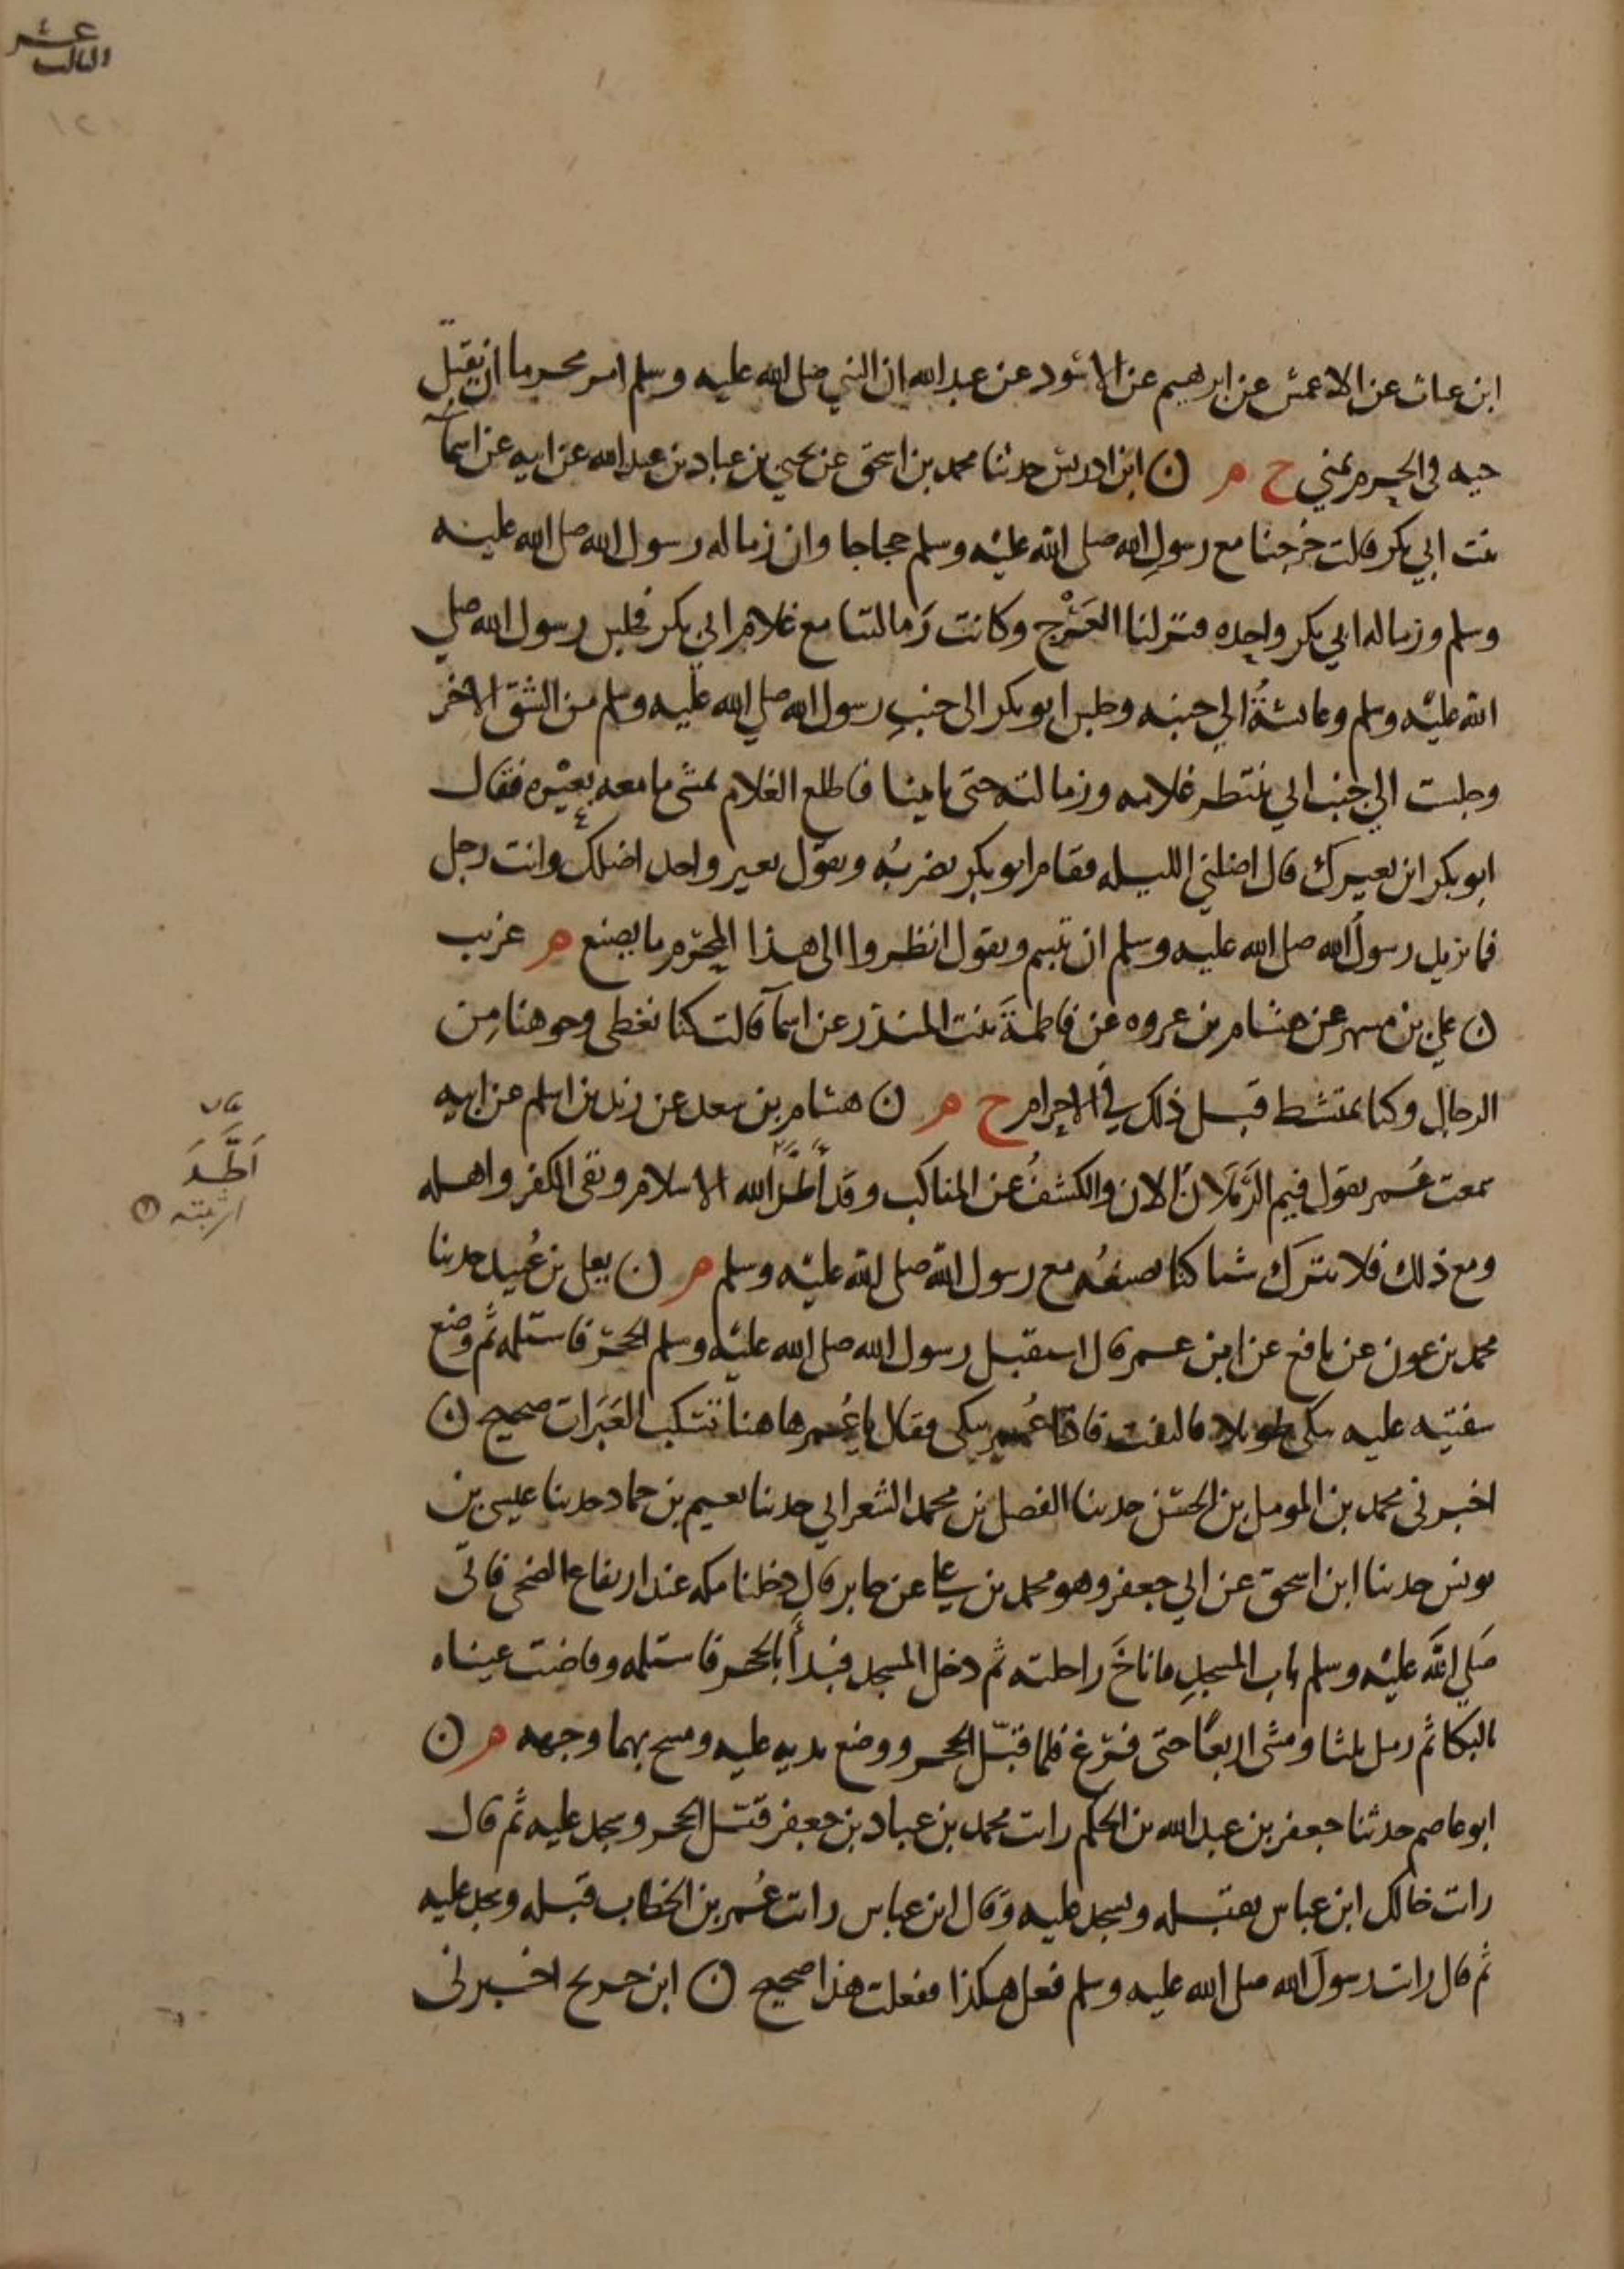 عشر
الثالث
١٢١
ابن غياث عن الاعمش عن ابرهيم عن الاسود عن عبد الله ان النبي صلى الله عليه وسلم امر محرما ان يقتل
حيه في الحرم بمنى خ م ن ابن ادريس حدثنا محمد بن اسحق عن يحيى بن عباد بن عبد الله عن ابيه عن اسمآ
بنت ابي بكر قالت خرجنا مع رسول الله صلى الله عليه وسلم حجاجا وان زماله رسول الله صلى الله عليه
وسلم وزماله ابي بكر واحده فنزلنا العَرْج وكانت زمالتنا مع غلام ابي بكر فجلس رسول الله صلى
الله عليه وسلم وعائشةُ الى جنبه وجلس ابو بكر الى جنبِ رسول الله صلى الله عليه وسلم من الشق الاخر
وجلست الى جنب ابي ننتظر غلامه وزمالته حتى ياتينا فاطلع الغلام يمشي ما معه بعيْره فقال
ابو بكر اين بعيرك قال اضلني الليله فقام ابو بكر يضربُه ويقول بعير واحد اضلك وانت رجل
فما يزيد رسول الله صلى الله عليه وسلم ان تبسم ويقول انظروا الى هذا المحرم ما يصنع م غريب
ن علي بن مسهر عن هشام بن عروه عن فاطمةَ بنت المنذر عن اسمآ قالت كنا نغطي وجوهنا مِن
الرجال وكنا نمتشط قبل ذلك في الاحرام خ م ن هشام بن سعد عن زيد بن اسلم عن ابيه
سمعت عُمر يقول فيم الرَّمَلان الان والكشفُ عن المناكب وقد أَطَّدَ الله الاسلام ونفى الكفر واهله
يقال
اَطَّدَ
اثبته
ومع ذلك فلا نترَك شيا كنا نصنعُه مع رسول الله صلى الله عليه وسلم م ن يعلى بن عُبيد حدثنا
محمد بن عون عن نافع عن ابن عمر قال استقبل رسول الله صلى الله عليه وسلم الحجر فاستلمه ثم وضع
شفتيه عليه يبكي طويلا فالتفت فاذا عُمر يبكي فقال يا عُمر هاهنا تُسْكب العَبَرات صحيح ن
اخبرني محمد بن المومل بن الحسن حدثنا الفضل بن محمد الشعراني حدثنا نعيم بن حماد حدثنا عيسى بن
يونس حدثنا ابن اسحق عن ابي جعفر وهو محمد بن علي عن جابر قال دخلنا مكه عند ارتفاع الضحى فاتى
صَلى اللهُ عليه وسلم باب المسجدِ فاناخَ راحلته ثم دخل المسجد فبدأ بالحجر فاستلمه وفاضت عيناه
بالبكا ثم رمل ثلثا ومشى اربعًا حتى فرغ فلما قبّل الحجر ووضع يديه عليه ومسح بهما وجهه م ن
ابو عاصم حدثنا جعفر بن عبد الله بن الحكم رايت محمد بن عباد بن جعفر قبّل الحجر وسجد عليه ثم قال
رايت خالك ابن عباس يقبله ويسجد عليه وقال ابن عباس رايت عُمر بن الخطاب قبله وسجد عليه
ثم قال رايت رسولَ الله صلى الله عليه وسلم فعل هكذا ففعلت هذا صحيح ن ابن جريج اخبرني